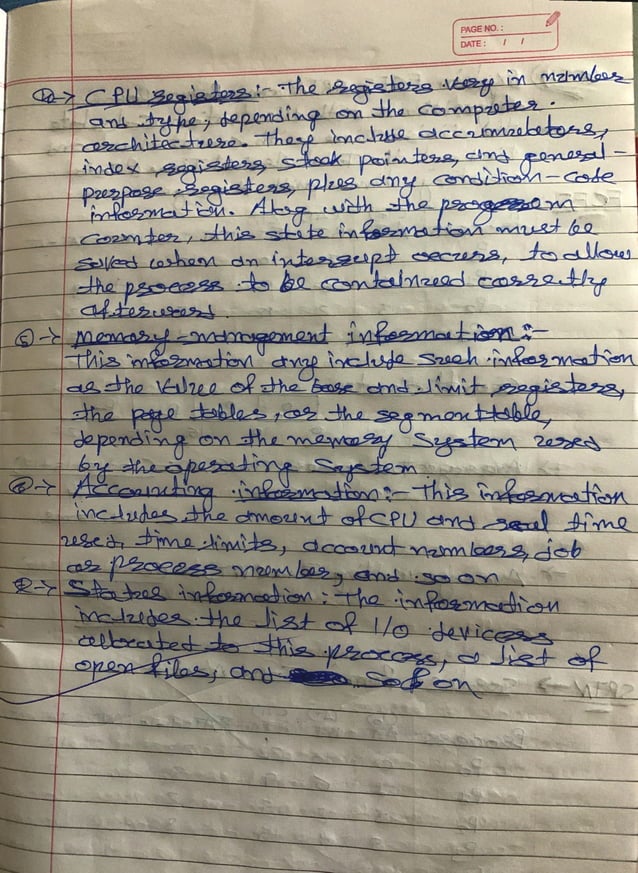 PAGE NO. :
DATE : / /
④→ CPU registers :- The registers vary in number
and type, depending on the computer.
architecture. They include accumulators,
index registers, stack pointers, and general-
purpose registers, plus any condition-code
information. Along with the program
counter, this state information must be
saved when an interrupt occurs, to allow
the process to be continued correctly
afterward.
⑤→ Memory-management information :-
This information include such information
as the value of the base and limit registers,
the page tables, or the segment table,
depending on the memory system used
by the operating system
⑥→ Accounting information :- This information
includes the amount of CPU and real time
used, time limits, account numbers, job
or process number, and so on
Status information : The information
includes the list of I/O devices
allocated to this process, a list of
open files, and so on